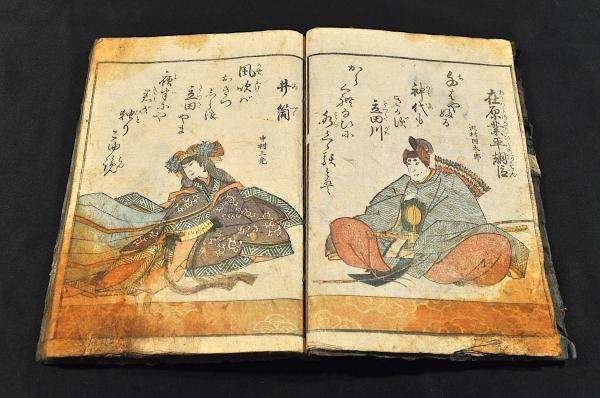 在原業平朝臣
沢村国太郎
ちはやふる
神代も
きかす
立田川
から
くれなゐに
水くゝるとは
井筒
中村三光
風吹ば
おきつ
しら波
立田やま
夜半にや
君が
独り
こゆらん